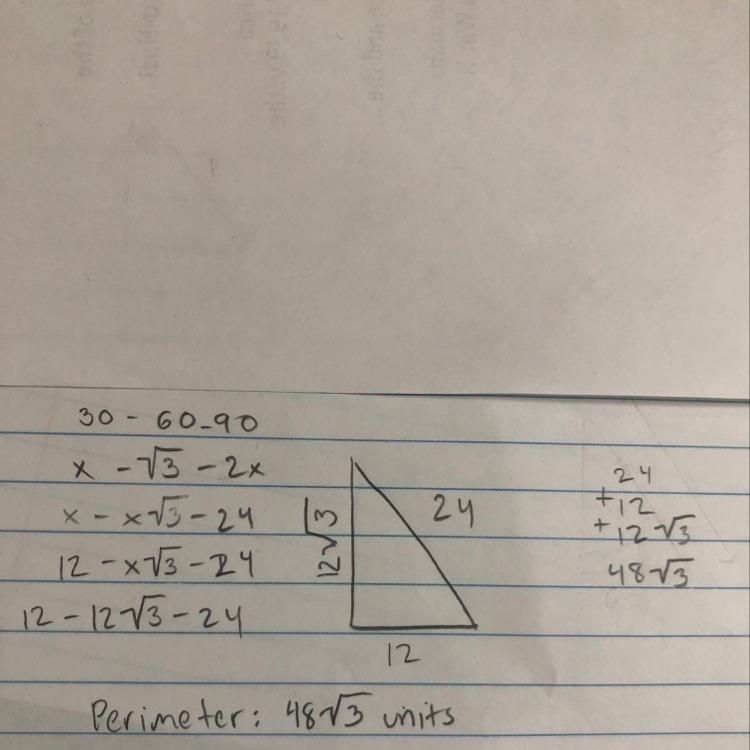 30 - 60-90
x - √3 - 2x
x - x√3 - 24
12 - x√3 - 24
12 - 12√3 - 24
12√3
24
12
24
+12
+12√3
48√3
Perimeter: 48√3 units